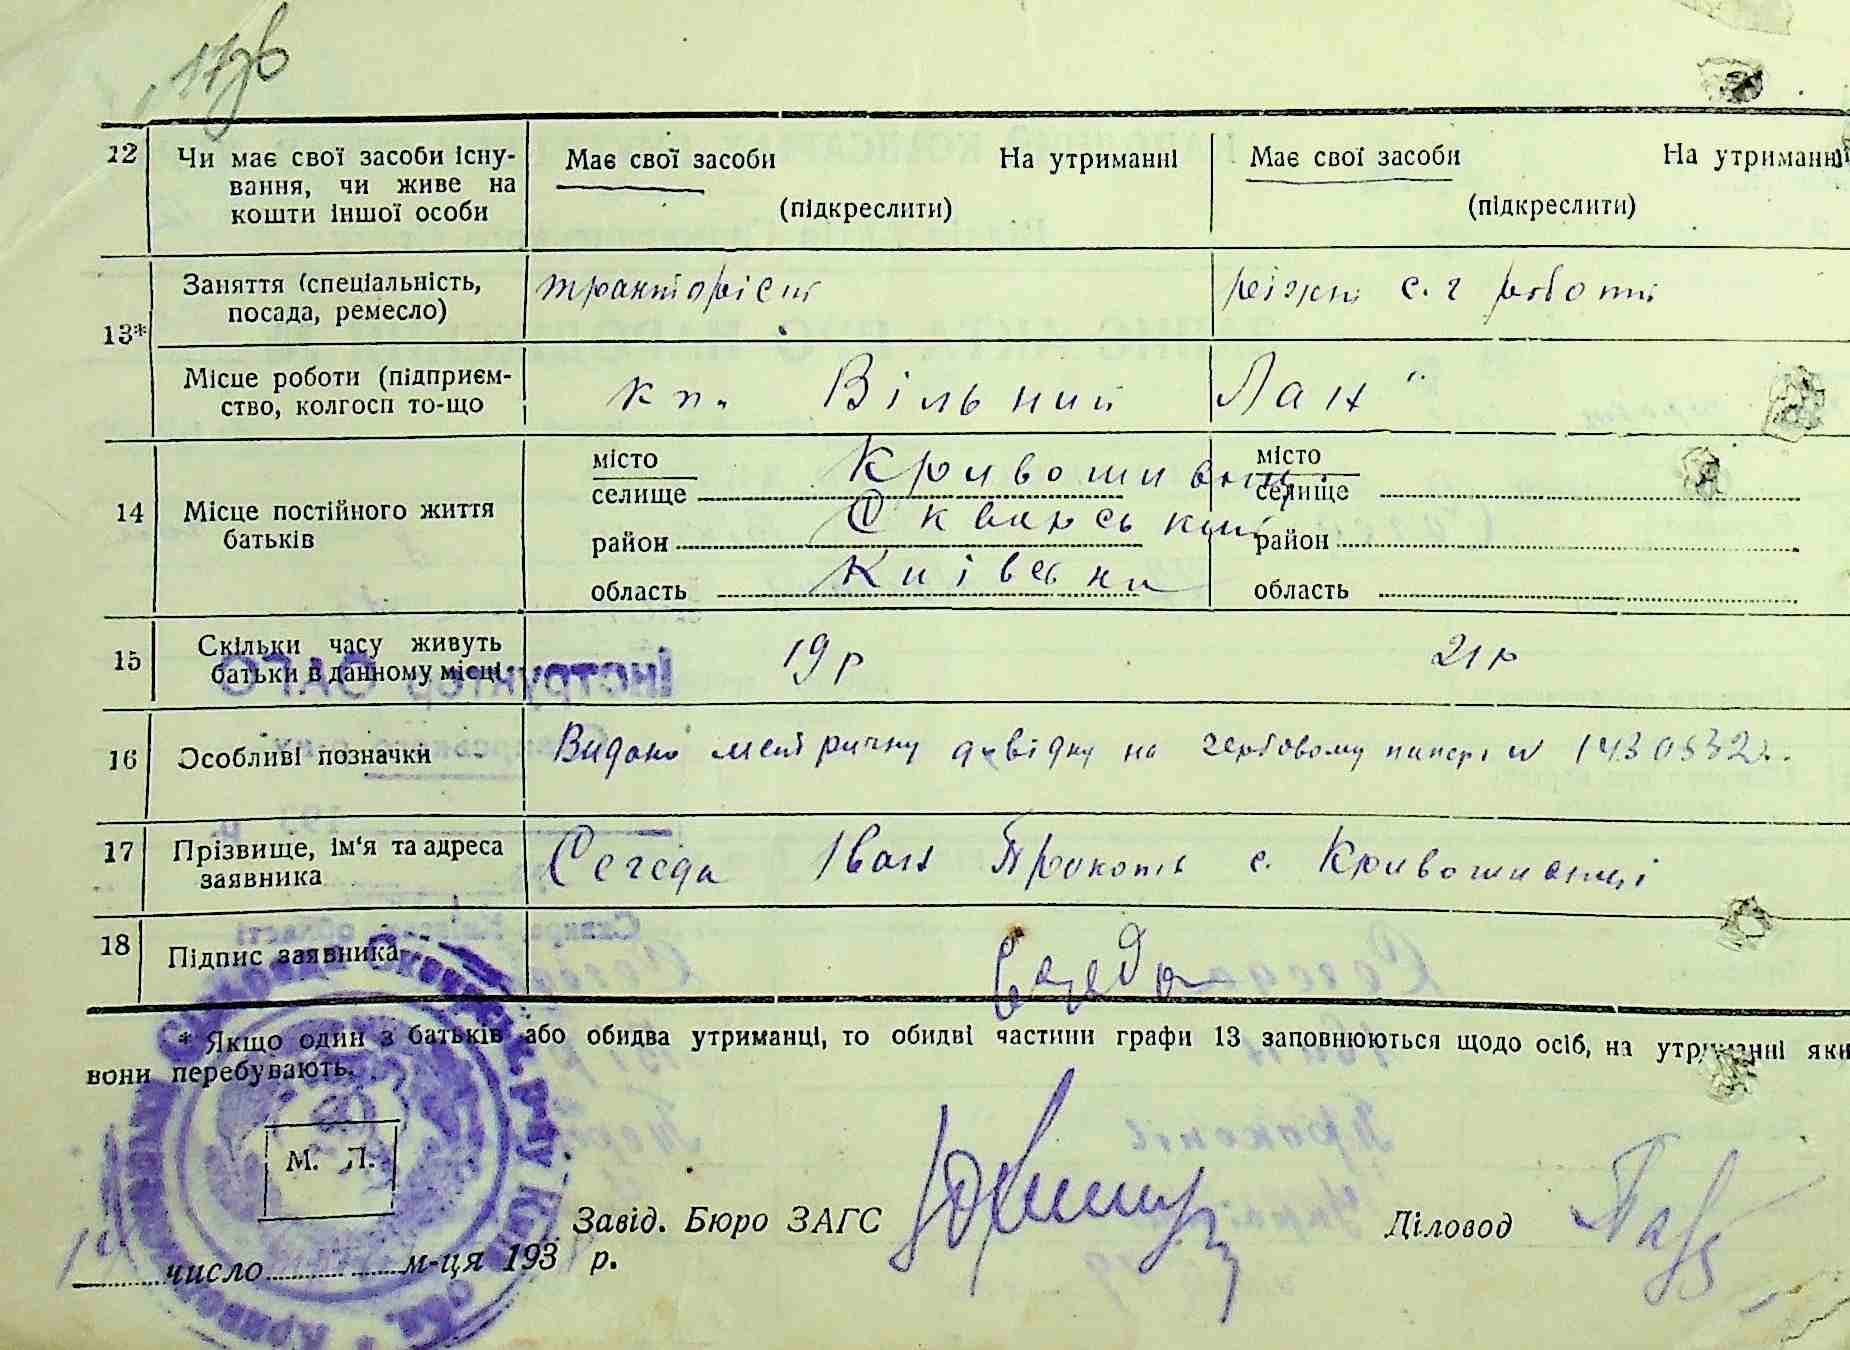 12
Чи має свої засоби існу-
вання, чи живе на
кошти іншої особи
Має свої засоби На утриманні
(підкреслити)
Має свої засоби На утриманні
(підкреслити)
13*
Заняття (спеціальність,
посада, ремесло)
тракторіст
ріжні с. г роботи
Місце роботи (підприєм-
ство, колгосп то-що
кп. Вільний Лан"
14
Місце постійного життя
батьків
місто
селище Кривошиїнці
район Сквирський
область Київська
місто
селище
район
область
15
Скільки часу живуть
батьки в данному місці
19 р
21 р
16
Особливі позначки
Видано метричну довідку на гербовому папері №
17
Прізвище, ім'я та адреса
заявника
Сегеда Іван Прокопів с. Кривошиєнці
18
Підпис заявника
Сегеда
* Якщо один з батьків або обидва утриманці, то обидві частини графи 13 заповнюються щодо осіб, на утриманні яки
вони перебувають.
М. П.
Завід. Бюро ЗАГС
Діловод
число м-ця 193 р.